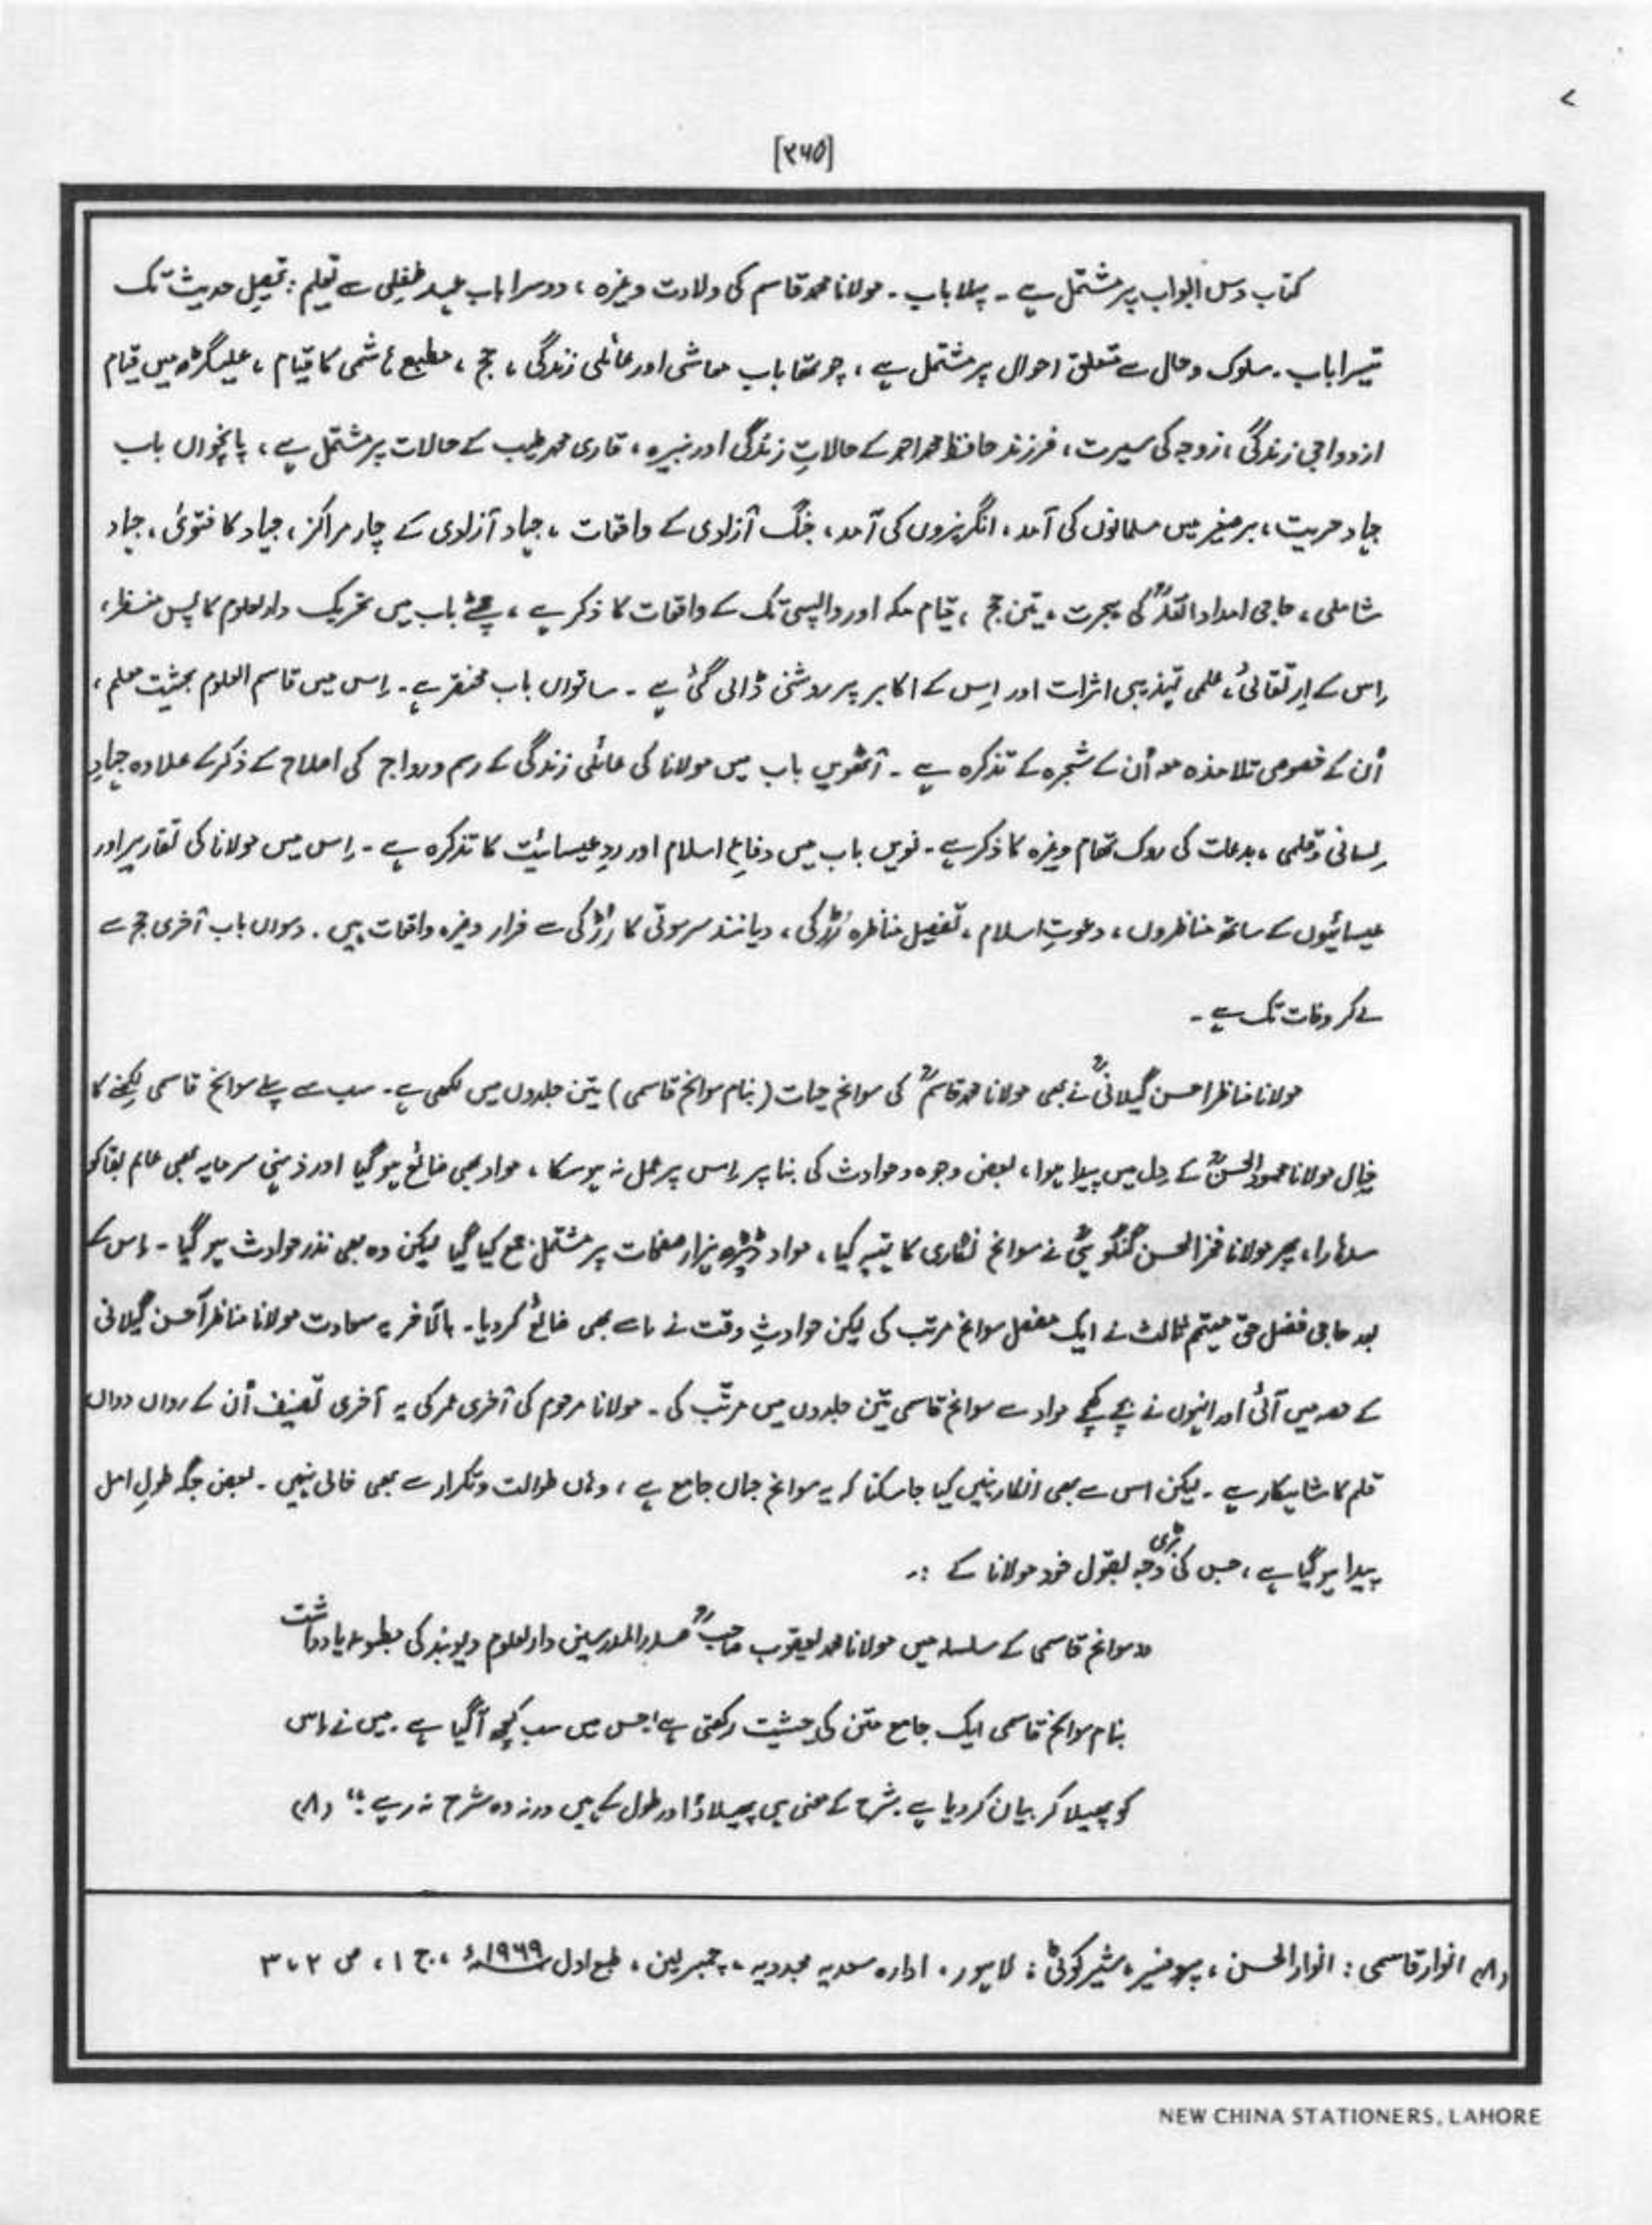 [۳۶۵]
کتاب دس ابواب پر مشتمل ہے ۔ پہلا باب ۔ مولانا محمد قاسم کی ولادت وغیرہ ، دوسرا باب عہدِ طفلی سے تعلیم : تحصیلِ حدیث تک
تیسرا باب ۔ سلوک و حال سے متعلق احوال پر مشتمل ہے ، چوتھا باب معاشی اور عائلی زندگی ، حج ، مطبع ہاشمی کا قیام ، علیگڑھ میں قیام
ازدواجی زندگی ، زوجہ کی سیرت ، فرزند حافظ محمد احمد کے حالاتِ زندگی اور نبیرہ ، قاری محمد طیب کے حالات پر مشتمل ہے ، پانچواں باب
جہادِ حریت ، برصغیر میں مسلمانوں کی آمد ، انگریزوں کی آمد ، جنگ آزادی کے واقعات ، جہاد آزادی کے چار مراکز ، جہاد کا فتویٰ ، جہاد
شاملی ، حاجی امداد اللہؒ کی ہجرت ، تین حج ، قیام مکہ اور واپسی تک کے واقعات کا ذکر ہے ، چھٹے باب میں تحریک دارالعلوم کا پس منظر ،
اِس کے اِرتقائی ، علمی تہذیبی اثرات اور اِس کے اکابر پر روشنی ڈالی گئی ہے ۔ ساتواں باب مختصر ہے ۔ اِس میں قاسم العلوم بحثیت معلم ،
اُن کے خصوصی تلامذہ معہ اُن کے شجرہ کے تذکرہ ہے ۔ آٹھویں باب میں مولانا کی عائلی زندگی کے رسم و رواج کی اصلاح کے ذکر کے علاوہ جہادِ
لِسانی و قلمی ، بدعات کی روک تھام وغیرہ کا ذکر ہے ۔ نویں باب میں دفاعِ اسلام اور ردِ عیسائیت کا تذکرہ ہے ۔ اِس میں مولانا کی تقاریر اور
عیسائیوں کے ساتھ مناظروں ، دعوتِ اسلام ، تفصیل مناظرہ رُڑکی ، دیانند سرسوتی کا رُڑکی سے فرار وغیرہ واقعات ہیں ۔ دسواں باب آخری حج سے
لے کر وفات تک ہے ۔
مولانا مناظر احسن گیلانیؒ نے بھی مولانا محمد قاسمؒ کی سوانح حیات (بنام سوانح قاسمی) تین جلدوں میں لکھی ہے ۔ سب سے پہلے سوانح قاسمی لکھنے کا
خیال مولانا محمود الحسنؒ کے دِل میں پیدا ہوا ، بعض وجوہ و حوادث کی بنا پر اِس پر عمل نہ ہو سکا ، مواد بھی ضائع ہو گیا اور ذہنی سرمایہ بھی عالم بقا کو
سدھارا ، پھر مولانا فخر الحسن گنگوہیؒ نے سوانح نگاری کا تہیہ کیا ، مواد ڈیڑھ ہزار صفحات پر مشتمل جمع کیا گیا لیکن وہ بھی نذر حوادث ہو گیا ۔ اِس کے
بعد حاجی فضل حق مہتمم ثالث نے ایک مفصل سوانح مرتب کی لیکن حوادثِ وقت نے اسے بھی ضائع کردیا ۔ بالآخر یہ سعادت مولانا مناظر احسن گیلانی
کے حصہ میں آئی اور انہوں نے بچے کھچے مواد سے سوانح قاسمی تین جلدوں میں مرتّب کی ۔ مولانا مرحوم کی آخری عمر کی یہ آخری تصنیف اُن کے رواں دواں
قلم کا شاہکار ہے ۔ لیکن اس سے بھی انکار نہیں کیا جاسکتا کہ یہ سوانح جہاں جامع ہے ، وہاں طوالت و تکرار سے بھی خالی نہیں ۔ بعض جگہ طولِ امل
پیدا ہو گیا ہے ، جس کی بڑی وجہ بقول خود مولانا کے :۔
"سوانح قاسمی کے سلسلہ میں مولانا محمد یعقوب صاحبؒ صدر المدرسین دارالعلوم دیوبند کی مطبوعہ یادداشت
بنام سوانح قاسمی ایک جامع متن کی حیثیت رکھتی ہے جس میں سب کچھ آگیا ہے ۔ میں نے اِس
کو پھیلا کر بیان کردیا ہے شرح کے معنی ہی پھیلاؤ اور طول کے ہیں ورنہ وہ شرح نہ رہے ؛" (۸)
(۸) انوار قاسمی : انوار الحسن ، پروفیسر ، شیر کوٹی : لاہور ۔ ادارہ سعدیہ مجددیہ ، چیمبرلین ، طبع اول ۱۹۶۹ء ، ج ۱ ، ص ۲ ، ۳
NEW CHINA STATIONERS, LAHORE